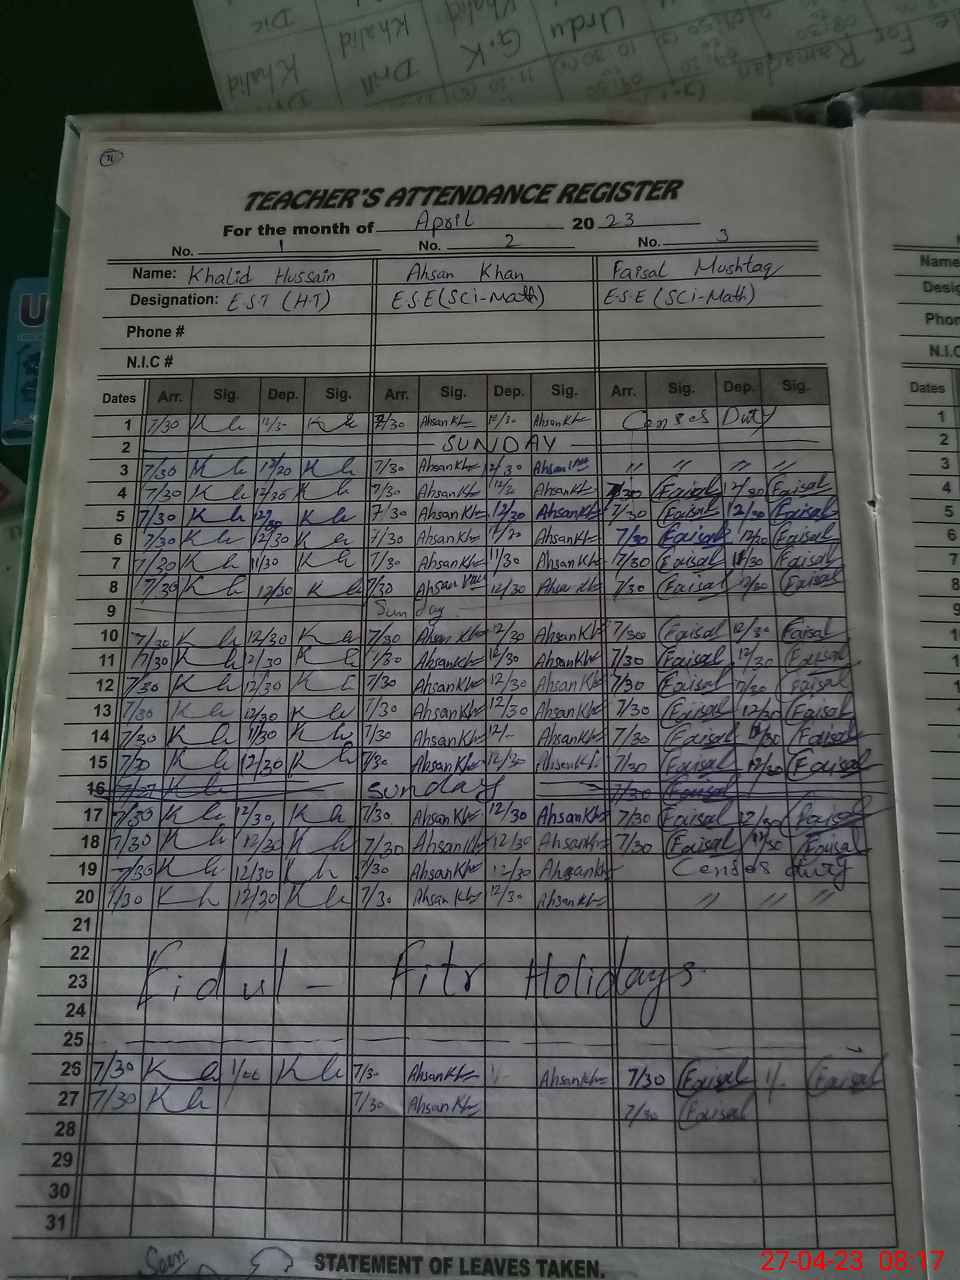 Die Khalid Khalid
Drill G.K Urdu
Ramadan For
11
TEACHER'S ATTENDANCE REGISTER
For the month of April 2023
No. 1 No. 2 No. 3
Name: Khalid Hussain Ahsan Khan Faisal Mushtaq
Designation: E.S.T (H.T) E.S.E (Sci-Math) E.S.E (Sci-Math)
Phone #
N.I.C #
Dates Arr. Sig. Dep. Sig. Arr. Sig. Dep. Sig. Arr. Sig. Dep. Sig.
1 7/30 Kh 12/30 Kh 7/30 AhsanKh 12/30 AhsanKh Census Duty
2 SUNDAY
3 7/30 Kh 12/20 Kh 7/30 AhsanKh 12/30 Ahsan " " " "
4 7/30 Kh 12/30 Kh 7/30 AhsanKh 12/30 AhsanKh 7/30 Faisal 12/30 Faisal
5 7/30 Kh 12/30 Kh 7/30 AhsanKh 12/30 AhsanKh 7/30 Faisal 12/30 Faisal
6 7/30 Kh 12/30 Kh 7/30 AhsanKh AhsanKh 7/30 Faisal 12/30 Faisal
7 7/30 Kh 11/30 Kh 7/30 AhsanKh 11/30 AhsanKh 7/30 Faisal 11/30 Faisal
8 7/30 Kh 12/30 Kh 7/30 Ahsan 12/30 AhsanKh 7/30 Faisal 12/30 Faisal
9 Sunday
10 7/30 Kh 12/30 Kh 7/30 AhsanKh 12/30 AhsanKh 7/30 Faisal 12/30 Faisal
11 7/30 Kh 12/30 Kh 7/30 AhsanKh 12/30 AhsanKh 7/30 Faisal 12/30 Faisal
12 7/30 Kh 12/30 K 7/30 AhsanKh 12/30 AhsanKh 7/30 Faisal 12/30 Faisal
13 7/30 Kh 12/30 Kh 7/30 AhsanKh 12/30 AhsanKh 7/30 Faisal 12/30 Faisal
14 7/30 Kh 11/30 Kh 7/30 AhsanKh 12/- AhsanKh 7/30 Faisal Faisal
15 7/30 Kh 12/30 Kh 7/30 AhsanKh 12/30 AhsanKh 7/30 Faisal 12/30 Faisal
16 7/30 Kh Sunday 7/30 Faisal
17 7/30 Kh 12/30 Kh 7/30 AhsanKh 12/30 AhsanKh 7/30 Faisal 12/30 Faisal
18 7/30 Kh 12/30 Kh 7/30 AhsanKh 12/30 AhsanKh 7/30 Faisal 12/30 Faisal
19 7/30 Kh 12/30 Kh 7/30 AhsanKh 12/30 AhsanKh Census duty
20 7/30 Kh 12/30 Kh 7/30 AhsanKh 12/30 AhsanKh " " "
21
22
23 Eidul - Fitr Holidays
24
25
26 7/30 Kh Kh 7/30 AhsanKh 1/- AhsanKh 7/30 Faisal 1/- Faisal
27 7/30 Kh 7/30 AhsanKh 7/30 Faisal
28
29
30
31
Seen
STATEMENT OF LEAVES TAKEN.
27-04-23 08:17
Name
Desig
Phon
N.I.C
Dates
1
2
3
4
5
6
7
8
9